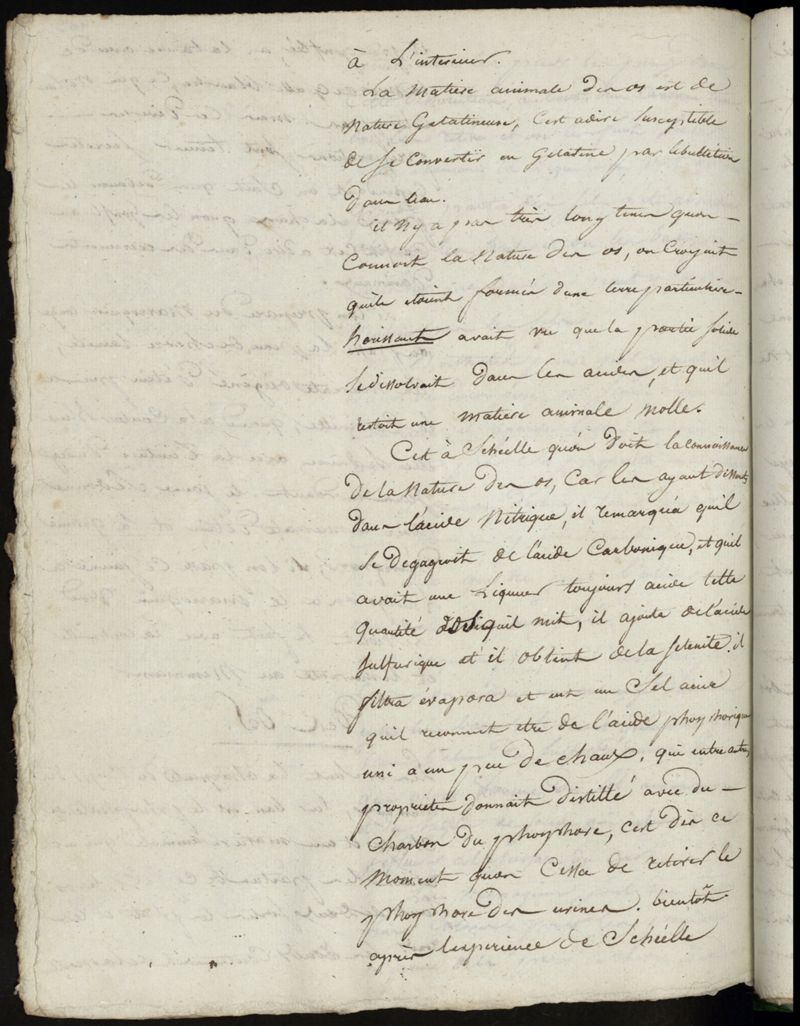 à L'interieur.
La Matiere animale des os est de
Nature Gelatineuse, c'est adire susceptible
de se Convertir en Gelatine par lebullition
dans l'eau.
il N'y a pas très long tems quon
Connoit la Nature des os, on Croyait
quils etoient formés d'une terre particuliere
herissant avait vu que la partie solide
se dissolvait dans les acides, et quil
restoit une matiere animale molle.
C'est à Schéelle quón doit la connoissance
de la Nature des os, Car les ayant dissouts
dans l'acide Nitrique, il remarqua quil
se degageoit de l'acide Carbonique, et quil
avait une Liqueur toujours acide telle
quantité dos quil mit, il ajouta de l'acide
sulfurique et il obtint de la selenite. il
filtra évapora et eut un Sel acide
quil reconnut etre de l'acide phosphorique
uni a un peu de chaux, qui entre autres
proprietés donnait distillé avec du
Charbon du phosphore, c'est dès ce
Moment quon Cessa de retirer le
phosphore des urines. bientôt
après l'experience de Schéelle